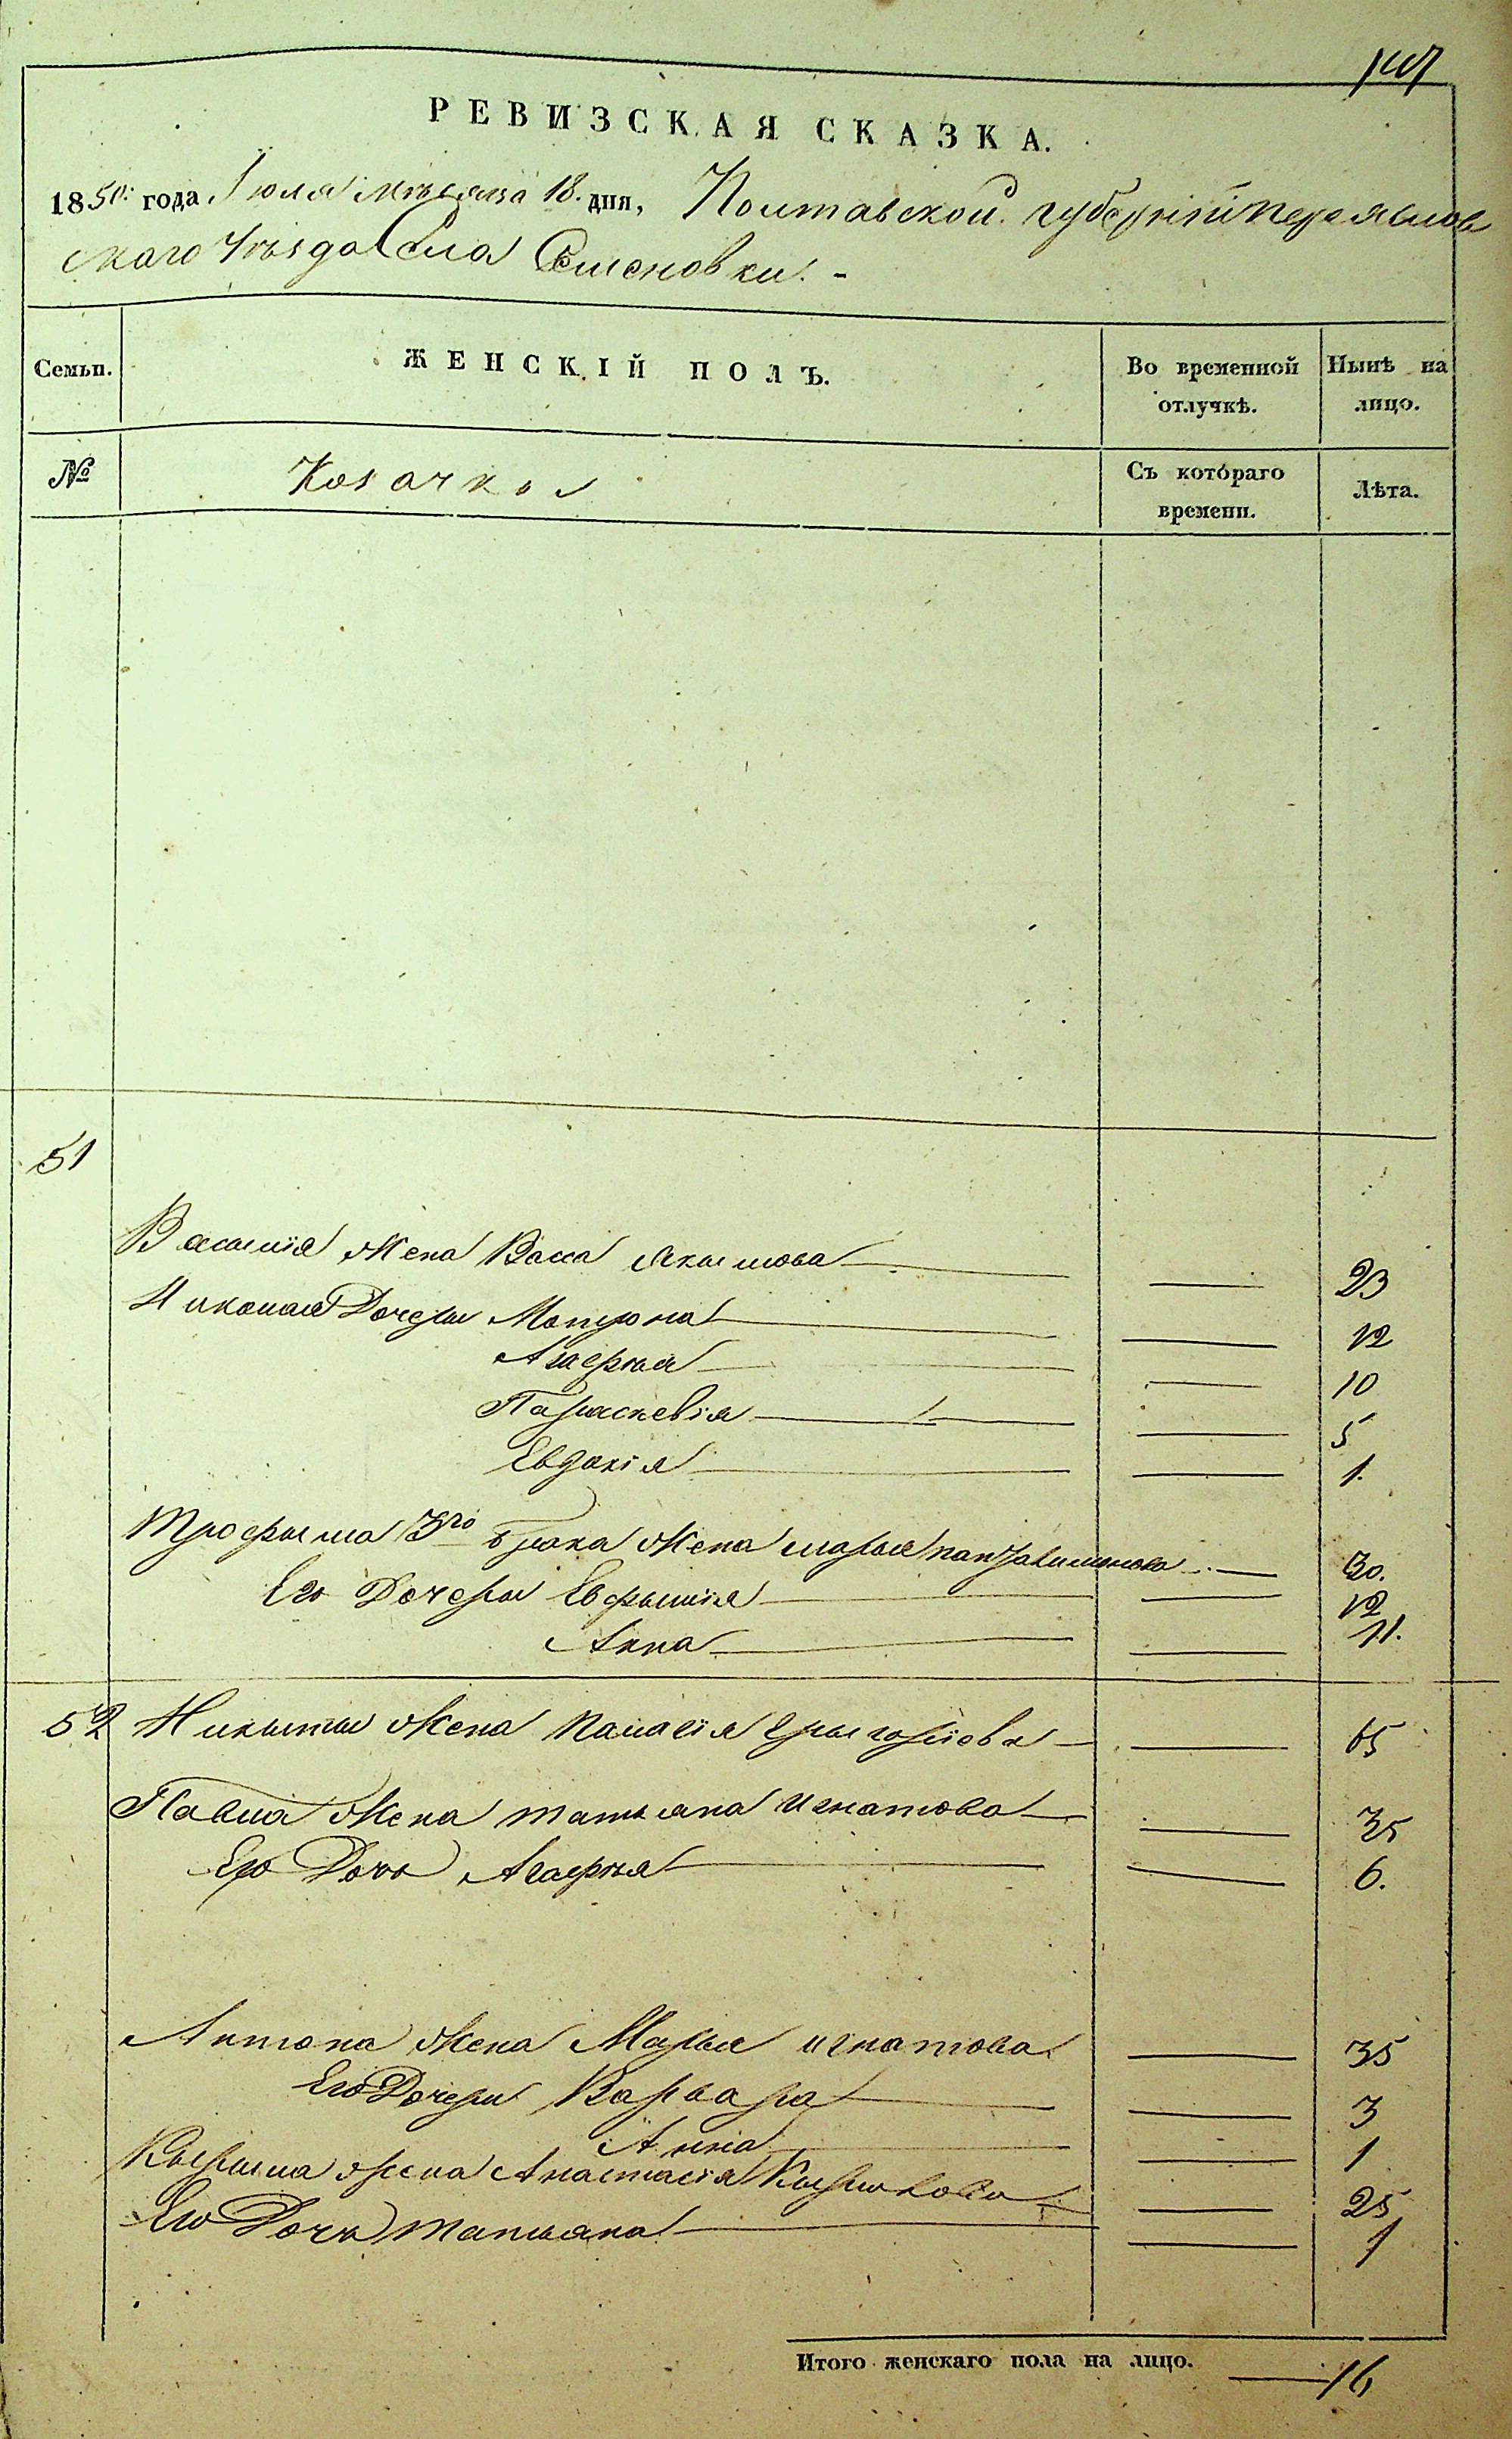 РЕВИЗСКАЯ СКАЗКА.
1850: года Іюля мѣсяца 18. дня, Полтавской губерніи Переяслов
скаго уѣзда Села Семеновки. -
Семьи.
ЖЕНСКІЙ ПОЛЪ.
Во временной отлучкѣ.
Ныиѣ на лицо.
№
Козачков
Съ котораго времени.
Лѣта.
51
Василія Жена Васса Акимова — — 23
Николая Дочери Мотрона — — 12
Агафия — — 10
Параскевія — — 5
Евдокія — — 1.
Трофыма 3го брака Жена марья — 30.
Его Дочери Евфимія — — 12
Анна — — 11.
52 Никыты Жена Палагія Грыгоріева — — 65
Павла Жена татьяна игнатова — — 35
Его Дочь Агафия — — 6.
Антона Жена Марья игнатова — 35
Его Дочери Варвара — — 3
Анна — — 1
Кырыла жена Анастасія Кырыкова — — 25
Его Дочь татьяна — — 1
Итого женскаго пола на лицо. — 16